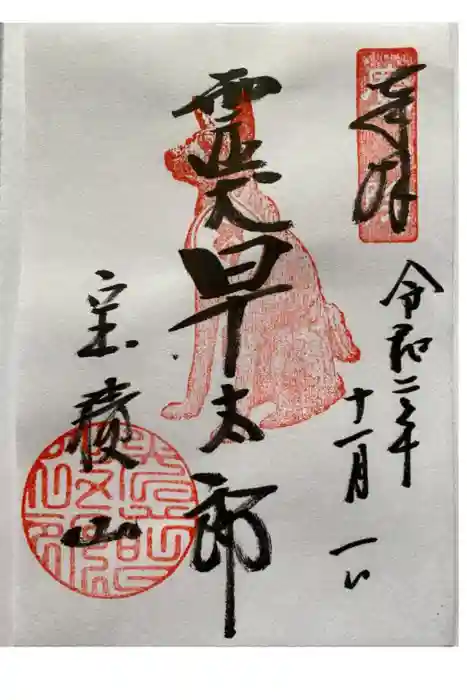 奉拝
令和二年
十一月一日
霊犬早太郎
宝積山